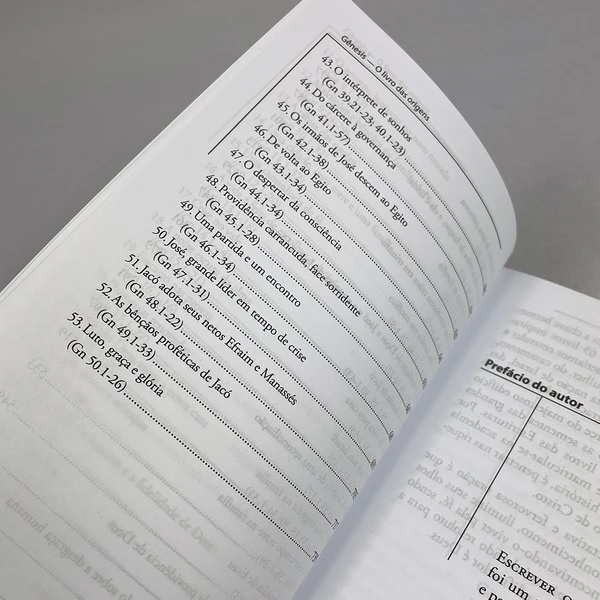 Gênesis — O livro das origens
43. O intérprete de sonhos
(Gn 39.21-23; 40.1-23)
44. Do cárcere à governança
(Gn 41.1-57)
45. Os irmãos de José descem ao Egito
(Gn 42.1-38)
46. De volta ao Egito
(Gn 43.1-34)
47. O despertar da consciência
(Gn 44.1-34)
48. Providência carrancuda, face sorridente
(Gn 45.1-28)
49. Uma partida e um encontro
(Gn 46.1-34)
50. José, grande líder em tempo de crise
(Gn 47.1-31)
51. Jacó adota seus netos Efraim e Manassés
(Gn 48.1-22)
52. As bênçãos proféticas de Jacó
(Gn 49.1-33)
53. Luto, graça e glória
(Gn 50.1-26)
Prefácio do autor
Escrever
foi um